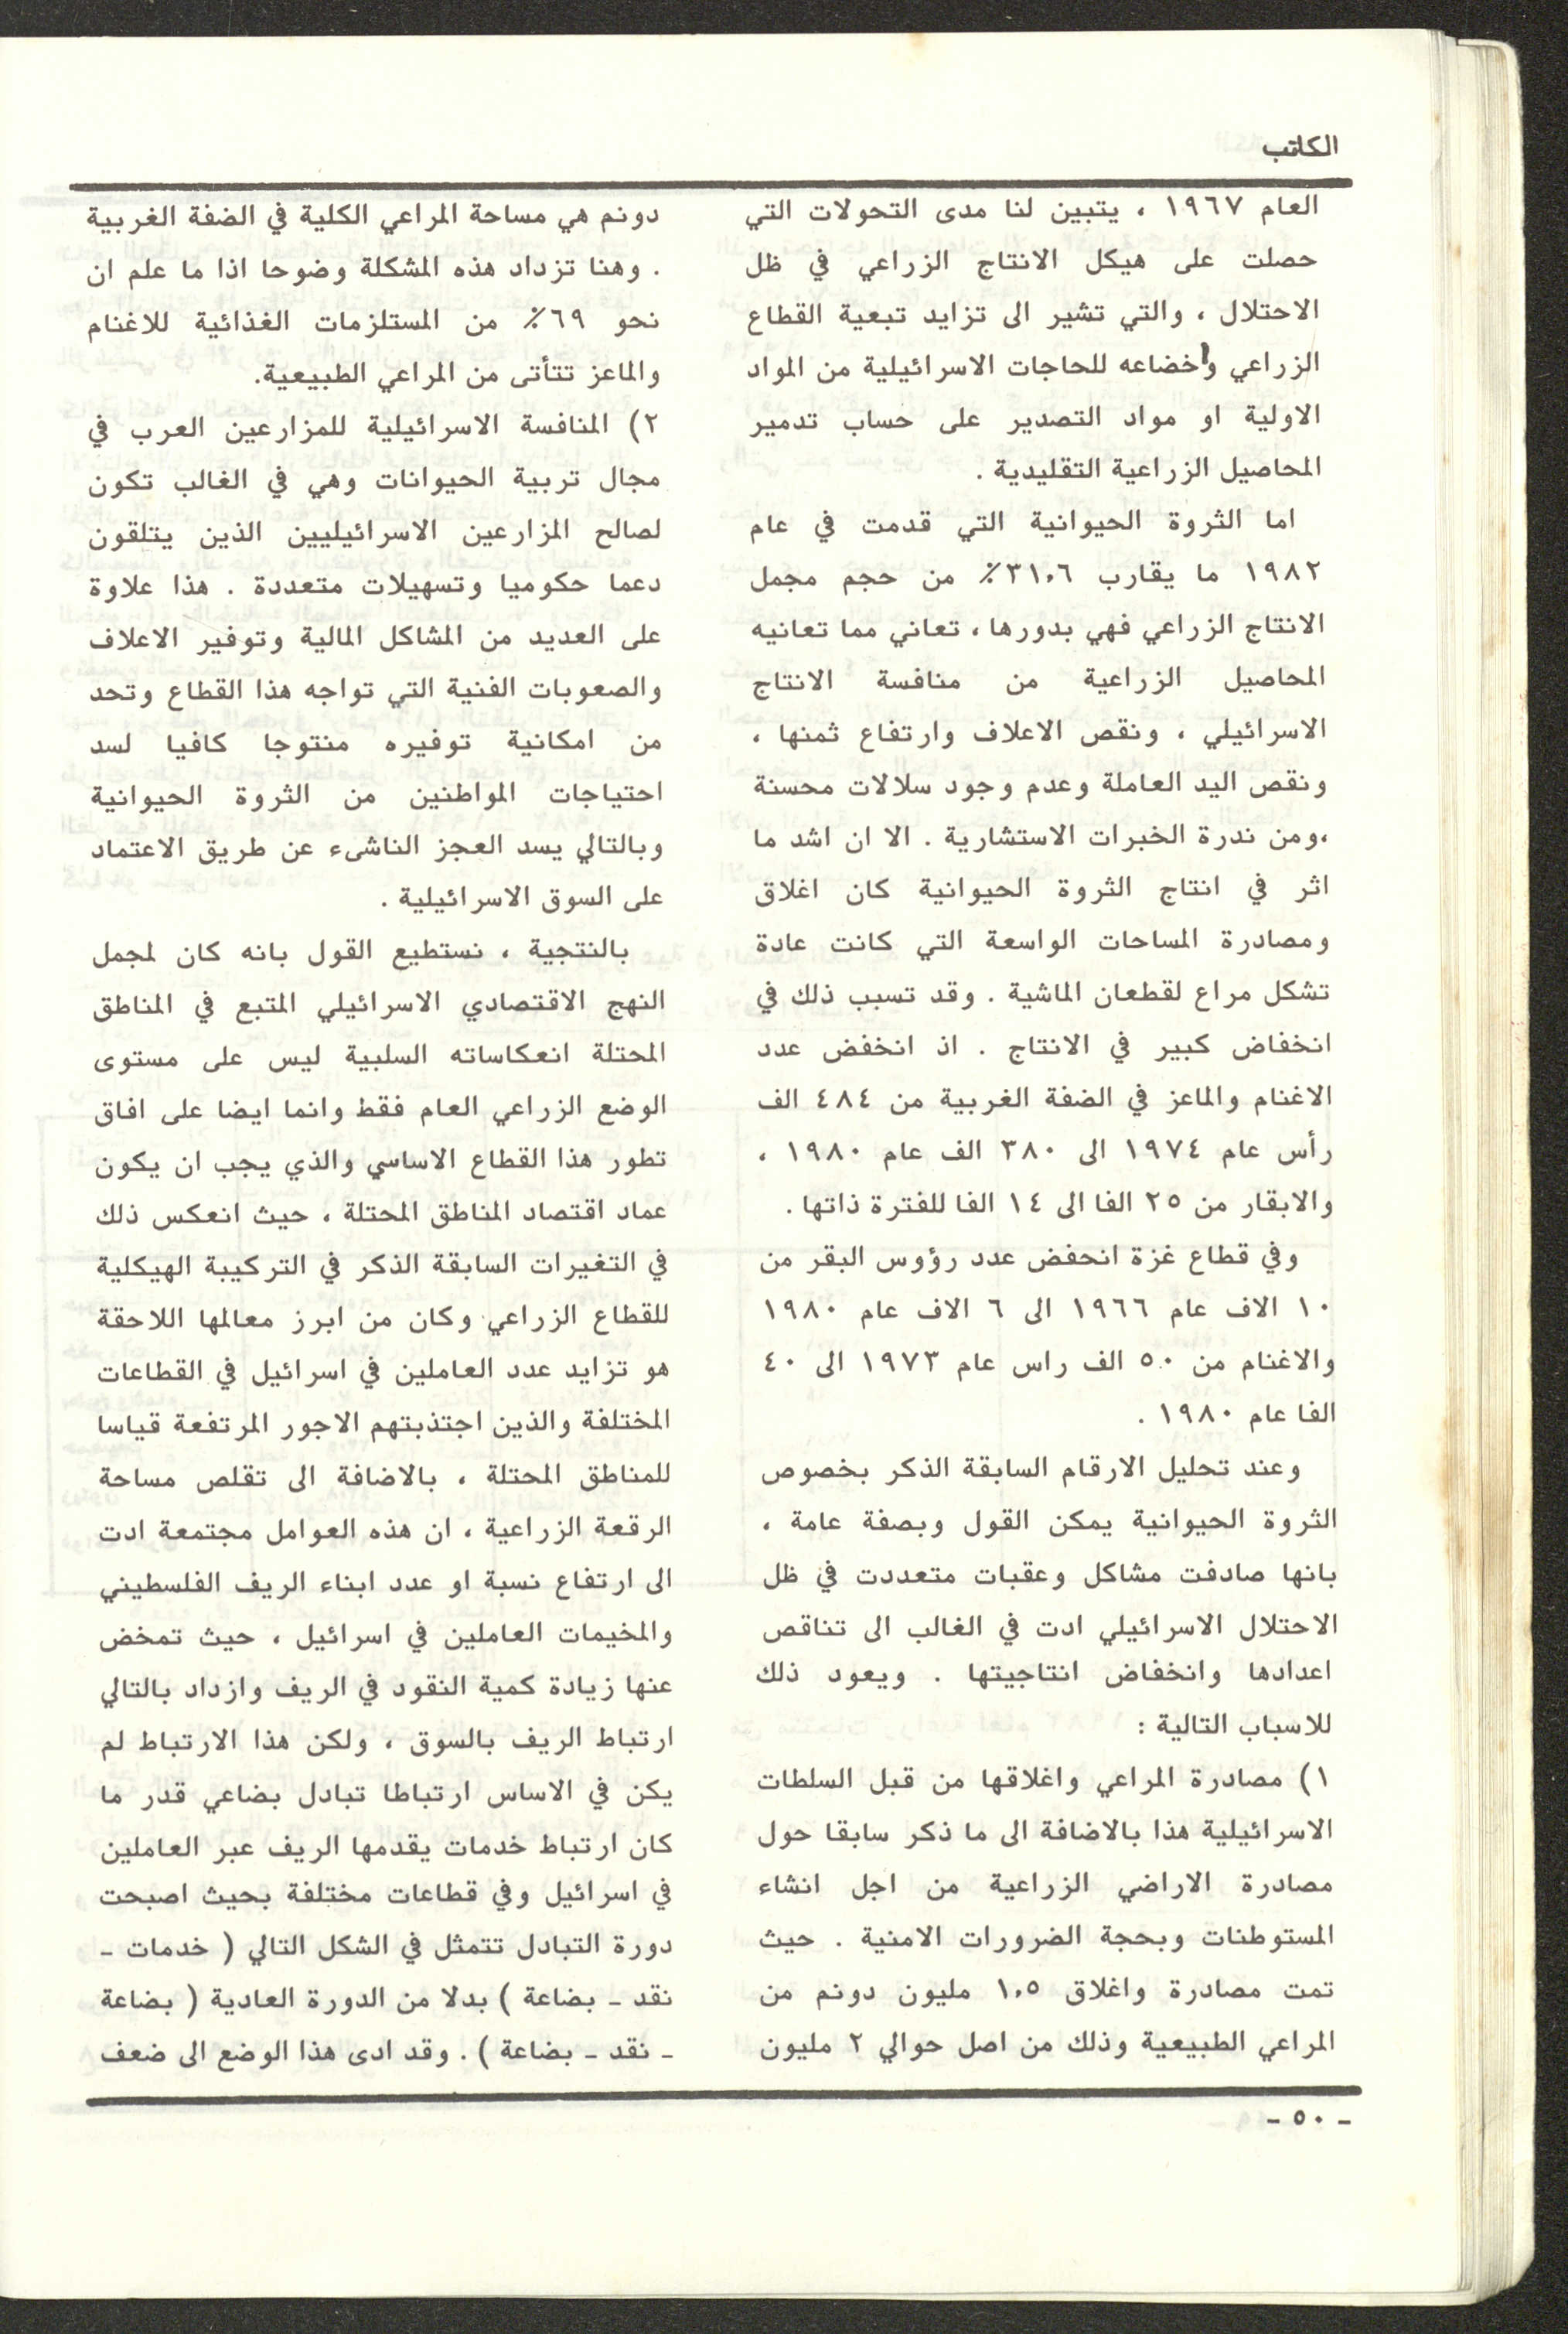 الكاتب
العام ١٩٦٧ ، يتبين لنا مدى التحولات التي
حصلت على هيكل الانتاج الزراعي في ظل
الاحتلال ، والتي تشير الى تزايد تبعية القطاع
الزراعي واخضاعه للحاجات الاسرائيلية من المواد
الاولية او مواد التصدير على حساب تدمير
المحاصيل الزراعية التقليدية .
اما الثروة الحيوانية التي قدمت في عام
١٩٨٢ ما يقارب ٣١,٦٪ من حجم مجمل
الانتاج الزراعي فهي بدورها ، تعاني مما تعانيه
المحاصيل الزراعية من منافسة الانتاج
الاسرائيلي ، ونقص الاعلاف وارتفاع ثمنها ،
ونقص اليد العاملة وعدم وجود سلالات محسنة
،ومن ندرة الخبرات الاستشارية . الا ان اشد ما
اثر في انتاج الثروة الحيوانية كان اغلاق
ومصادرة المساحات الواسعة التي كانت عادة
تشكل مراع لقطعان الماشية . وقد تسبب ذلك في
انخفاض كبير في الانتاج . اذ انخفض عدد
الاغنام والماعز في الضفة الغربية من ٤٨٤ الف
رأس عام ١٩٧٤ الى ٣٨٠ الف عام ١٩٨٠ ،
والابقار من ٢٥ الفا الى ١٤ الفا للفترة ذاتها .
وفي قطاع غزة انحفض عدد رؤوس البقر من
١٠ الاف عام ١٩٦٦ الى ٦ الاف عام ١٩٨٠
والاغنام من ٥٠ الف راس عام ١٩٧٣ الى ٤٠
الفا عام ١٩٨٠ .
وعند تحليل الارقام السابقة الذكر بخصوص
الثروة الحيوانية يمكن القول وبصفة عامة ،
بانها صادفت مشاكل وعقبات متعددت في ظل
الاحتلال الاسرائيلي ادت في الغالب الى تناقص
اعدادها وانخفاض انتاجيتها . ويعود ذلك
للاسباب التالية :
١) مصادرة المراعي واغلاقها من قبل السلطات
الاسرائيلية هذا بالاضافة الى ما ذكر سابقا حول
مصادرة الاراضي الزراعية من اجل انشاء
المستوطنات وبحجة الضرورات الامنية . حيث
تمت مصادرة واغلاق ١,٥ مليون دونم من
المراعي الطبيعية وذلك من اصل حوالي ٢ مليون
دونم هي مساحة المراعي الكلية في الضفة الغربية
. وهنا تزداد هذه المشكلة وضوحا اذا ما علم ان
نحو ٦٩٪ من المستلزمات الغذائية للاغنام
والماعز تتأتى من المراعي الطبيعية.
٢) المنافسة الاسرائيلية للمزارعين العرب في
مجال تربية الحيوانات وهي في الغالب تكون
لصالح المزارعين الاسرائيليين الذين يتلقون
دعما حكوميا وتسهيلات متعددة . هذا علاوة
على العديد من المشاكل المالية وتوفير الاعلاف
والصعوبات الفنية التي تواجه هذا القطاع وتحد
من امكانية توفيره منتوجا كافيا لسد
احتياجات المواطنين من الثروة الحيوانية
وبالتالي يسد العجز الناشىء عن طريق الاعتماد
على السوق الاسرائيلية .
بالنتجية ، نستطيع القول بانه كان لمجمل
النهج الاقتصادي الاسرائيلي المتبع في المناطق
المحتلة انعكاساته السلبية ليس على مستوى
الوضع الزراعي العام فقط وانما ايضا على افاق
تطور هذا القطاع الاساسي والذي يجب ان يكون
عماد اقتصاد المناطق المحتلة ، حيث انعكس ذلك
في التغيرات السابقة الذكر في التركيبة الهيكلية
للقطاع الزراعي وكان من ابرز معالمها اللاحقة
هو تزايد عدد العاملين في اسرائيل في القطاعات
المختلفة والذين اجتذبتهم الاجور المرتفعة قياسا
للمناطق المحتلة ، بالاضافة الى تقلص مساحة
الرقعة الزراعية ، ان هذه العوامل مجتمعة ادت
الى ارتفاع نسبة او عدد ابناء الريف الفلسطيني
والمخيمات العاملين في اسرائيل ، حيث تمخض
عنها زيادة كمية النقود في الريف وازداد بالتالي
ارتباط الريف بالسوق ، ولكن هذا الارتباط لم
يكن في الاساس ارتباطا تبادل بضاعي قدر ما
كان ارتباط خدمات يقدمها الريف عبر العاملين
في اسرائيل وفي قطاعات مختلفة بحيث اصبحت
دورة التبادل تتمثل في الشكل التالي ( خدمات ـ
نقد ـ بضاعة ) بدلا من الدورة العادية ( بضاعة
ـ نقد ـ بضاعة ) . وقد ادى هذا الوضع الى ضعف
ـ ٥٠ ـ